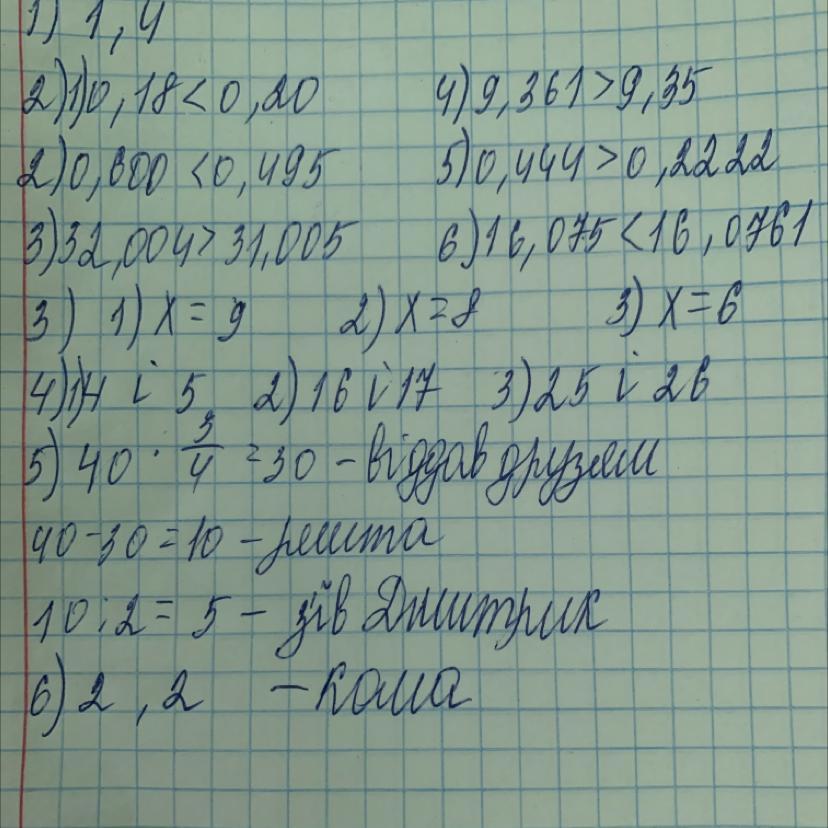 1) 1,4
2)1)0,18<0,20 4)9,361>9,35
2)0,600<0,495 5)0,444>0,2222
3)32,004>31,005 6)16,075<16,0761
3) 1) x = 9 2) x=8 3) x=6
4)1)4 і 5 2)16 і 17 3)25 і 26
5) 40 · 3/4 =30 – віддав друзям
40-30=10 – решта
10:2= 5 – з'їв Дмитрик
6) 2 , 2 – кома